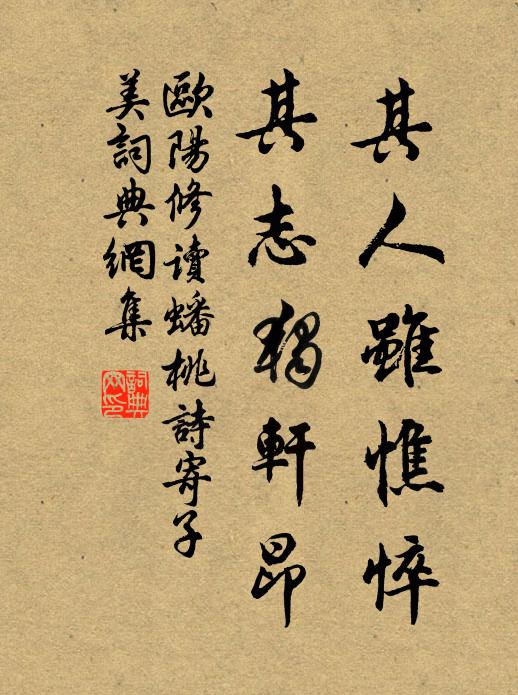 其人雖憔悴
其志獨軒昂
歐陽修讀蟠桃詩寄子
美詞典網集
詞典
网印